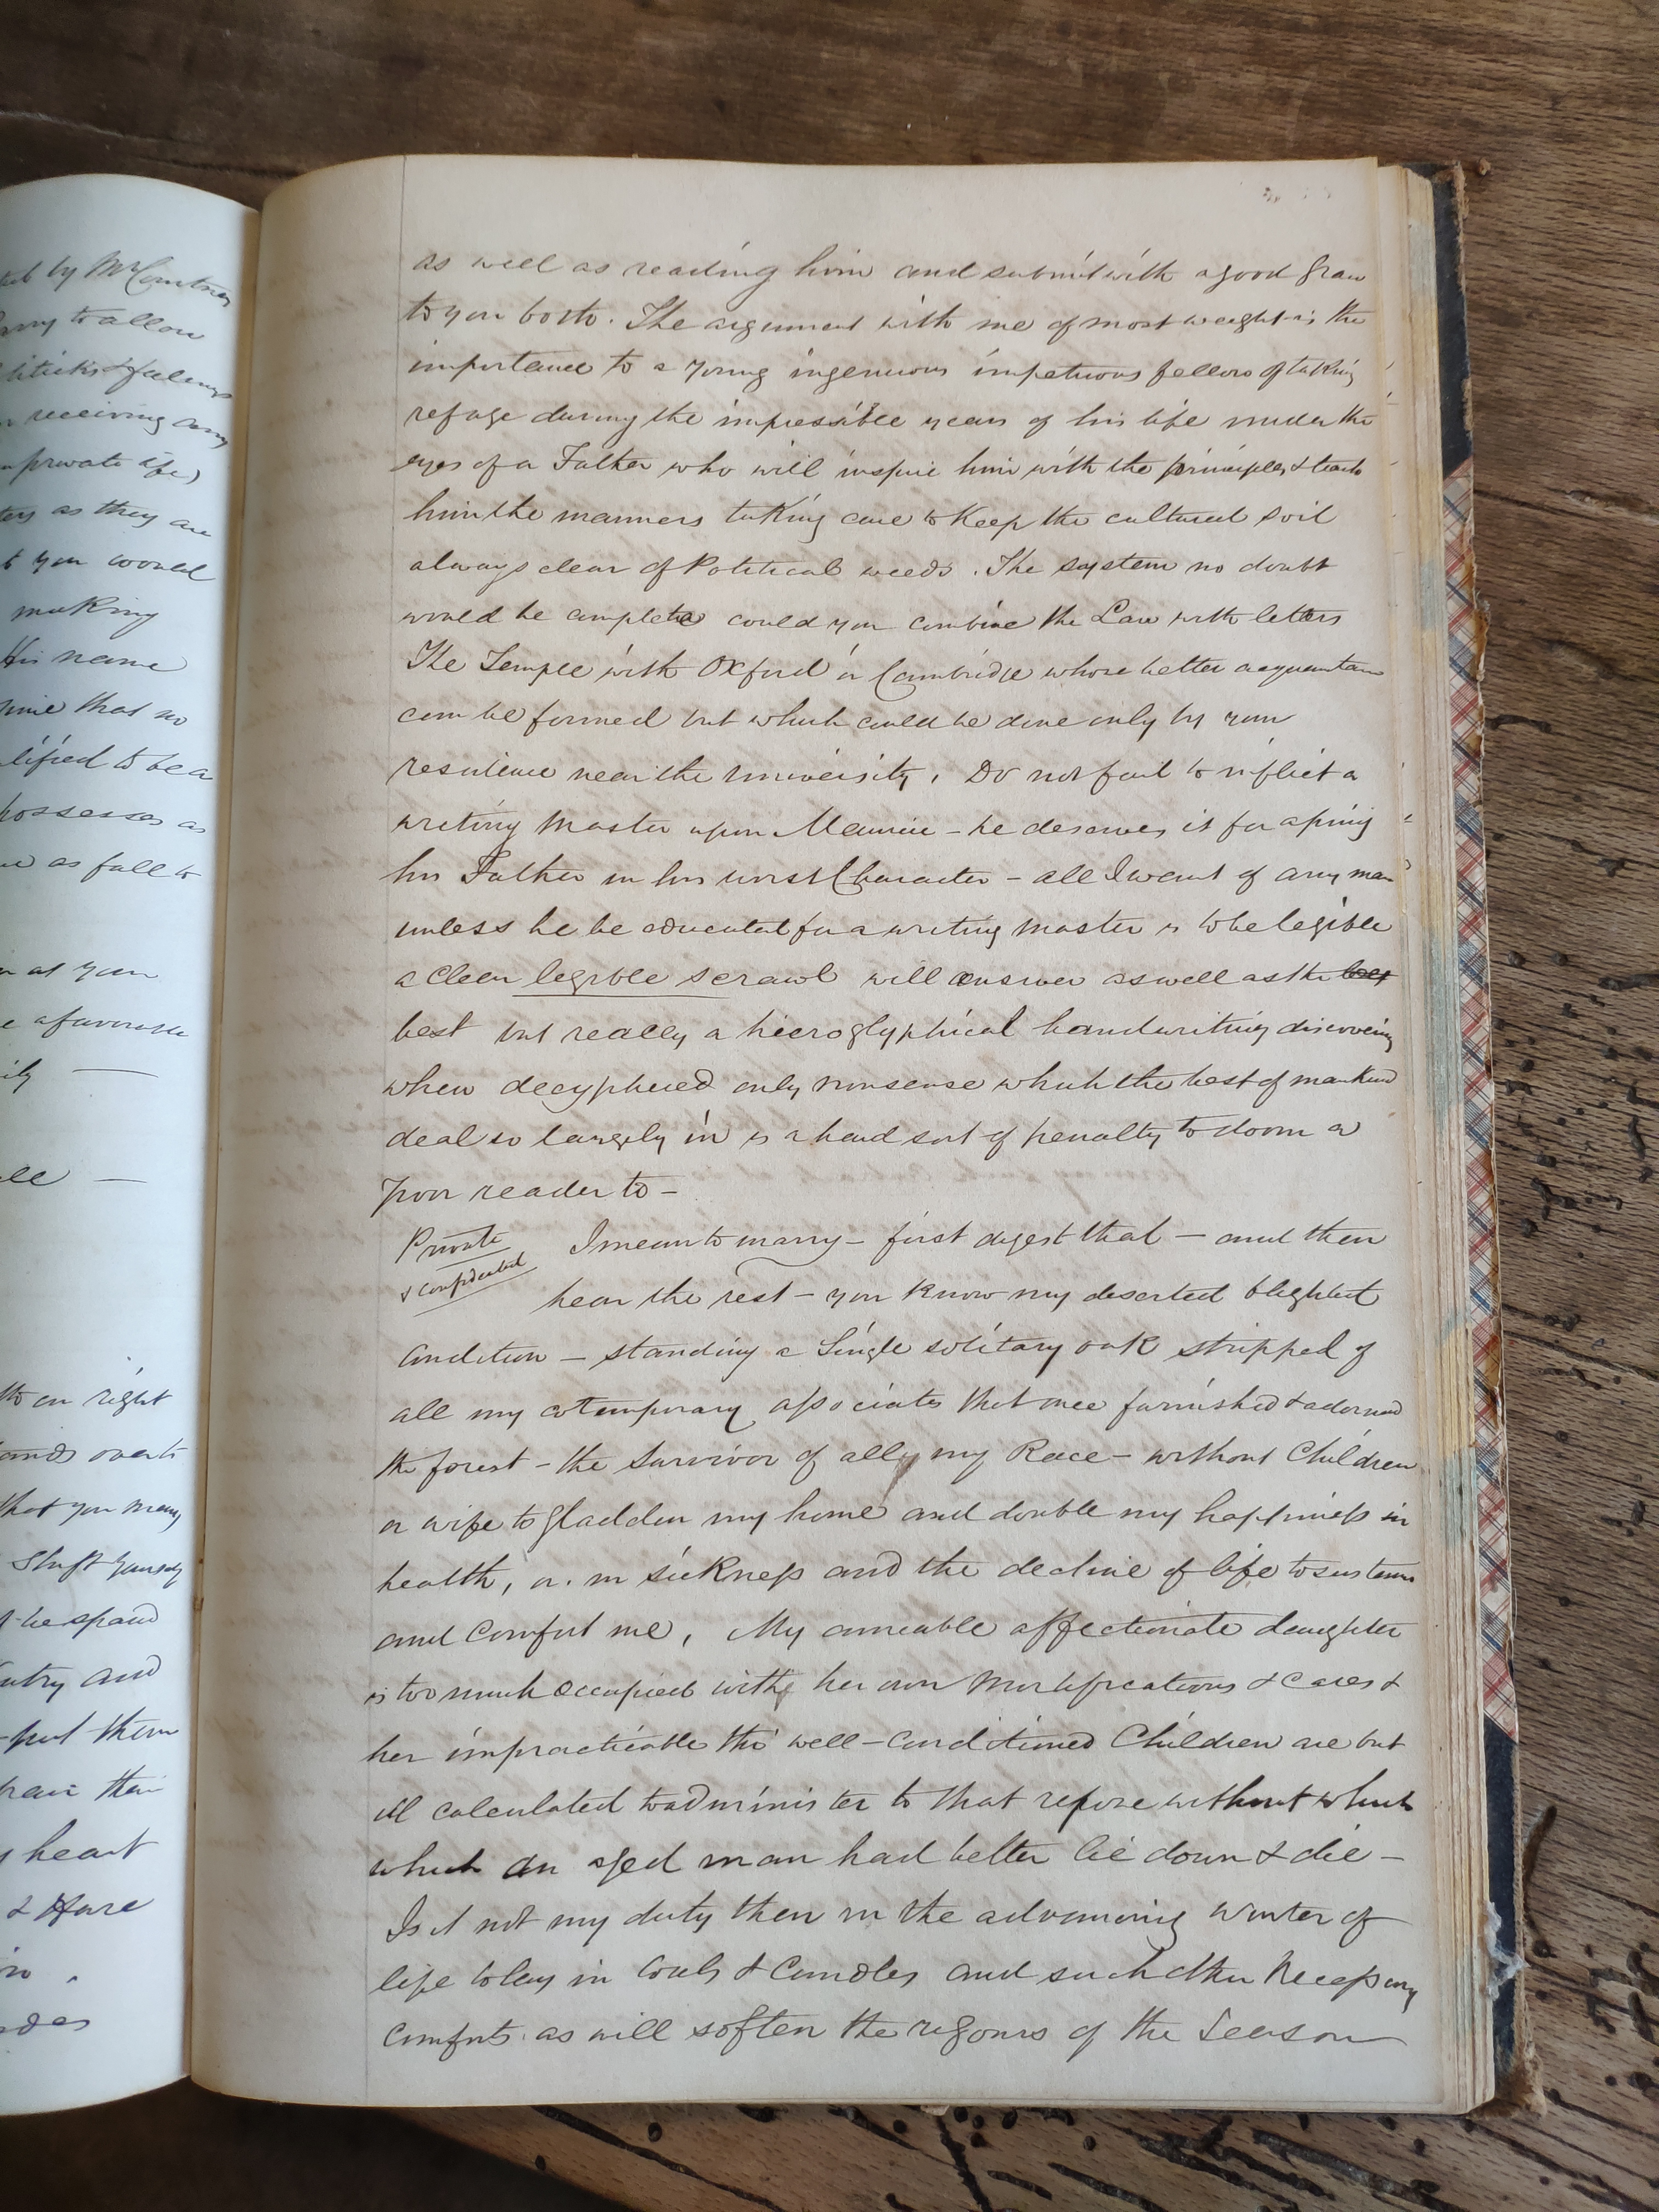 ted by Mr Courtney
to allow
& feelings
receiving any
private life)
as they are
you would
making
His name
that no
to be a
possesses as
as fall to
at your
a favourite
right
over to
that you may
Shift yourself
be spared
and
put them
their
heart
& Hare
as well as reading him and submit with a good grace
to you both. The argument with me of most weight is the
importance to a young ingenious impetuous fellow of taking
refuge during the impressible years of his life under the
eyes of a Father who will inspire him with the principles & teach
him the manners taking care to Keep the cultured soil
always clear of Political weeds. The system no doubt
would be complete could you combine the Law with letters
The Temple with Oxford or Cambridge where better acquaintan
can be formed but which could be done only by your
residence near the University, Do not fail to inflict a
writing Master upon Maurice – he deserves it for aping
his Father in his worst Character – all I want of any man
unless he be educated for a writing master is to be legible
a clean legible scrawl will answer as well as the best
best but really a hieroglyphical handwriting discovering
when decyphered only nonsense which the best of mankind
deal so largely in is a hard sort of penalty to doom a
poor reader to –
Private
& confidential
I mean to marry – first digest that – and then
hear the rest – you know my deserted blighted
Condition – standing a Single solitary oak stripped of
all my cotemporary associates that once furnished & adorned
the forest – the Survivor of all my Race – without Children
or wife to gladden my home and double my happiness in
health, or in sickness and the decline of life to sustain
and Comfort me, My amiable affectionate daughter
is too much occupied with her own Mortifications & cares &
her impracticable tho' well-Conditioned Children are but
ill calculated to administer to that repose without which
which an aged man had better lie down & die –
Is it not my duty then in the advancing Winter of
life to lay in Coals & Candles and such other Necessary
Comforts as will soften the rigours of the Season